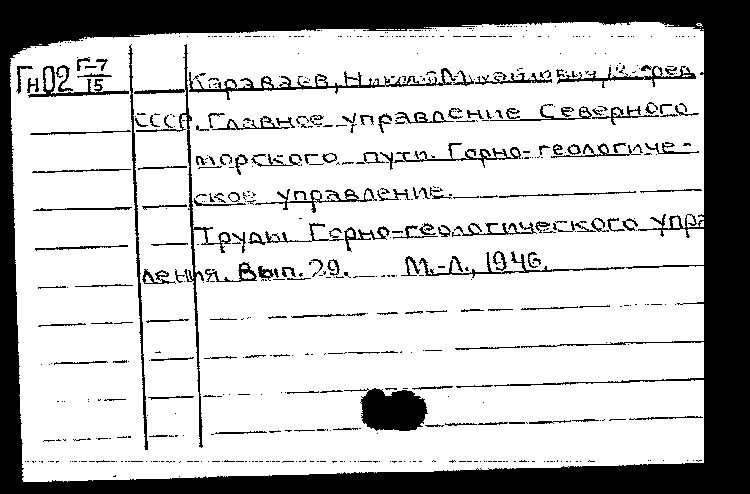 Гн02 Г-7/15 Караваев, Николай Михайлович, ред.
СССР. Главное управление Северного
морского пути. Горно-геологиче-
ское управление.
Труды Горно-геологического упра
ления. Вып. 29. М.-Л., 1946.